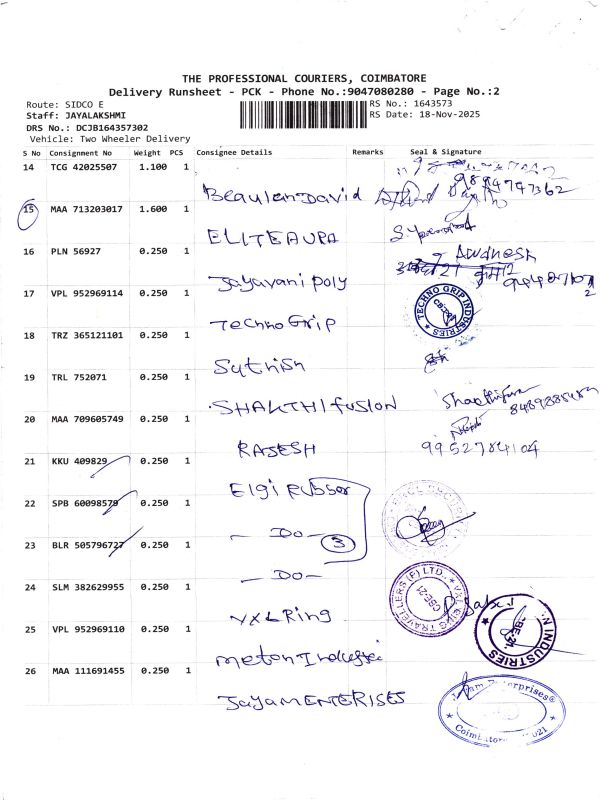 THE PROFESSIONAL COURIERS, COIMBATORE
Delivery Runsheet - PCK - Phone No.:9047080280 - Page No.:2
Route: SIDCO E
Staff: JAYALAKSHMI
DRS No.: DCJB164357302
Vehicle: Two Wheeler Delivery
RS No.: 1643573
RS Date: 18-Nov-2025
S No Consignment No Weight PCS Consignee Details Remarks Seal & Signature
14 TCG 42025507 1.100 1
BeaulenDavid 9894747362
15 MAA 713203017 1.600 1
ELITEAURA
16 PLN 56927 0.250 1
Awdhesh
Jayavani poly
17 VPL 952969114 0.250 1
TECHNO GRIP INDUSTRIES
Techno Grip
18 TRZ 365121101 0.250 1
Sathish
19 TRL 752071 0.250 1
SHAKTHI fusion
20 MAA 709605749 0.250 1
RAJESH 9952784104
21 KKU 409829 0.250 1
Elgi Rubber
22 SPB 60098579 0.250 1
- Do -
23 BLR 505796727 0.250 1
3
- Do -
24 SLM 382629955 0.250 1
VXL Ring
25 VPL 952969110 0.250 1
INDUSTRIES
Meton
26 MAA 111691455 0.250 1
Jayam ENTERISES
Coimbatore